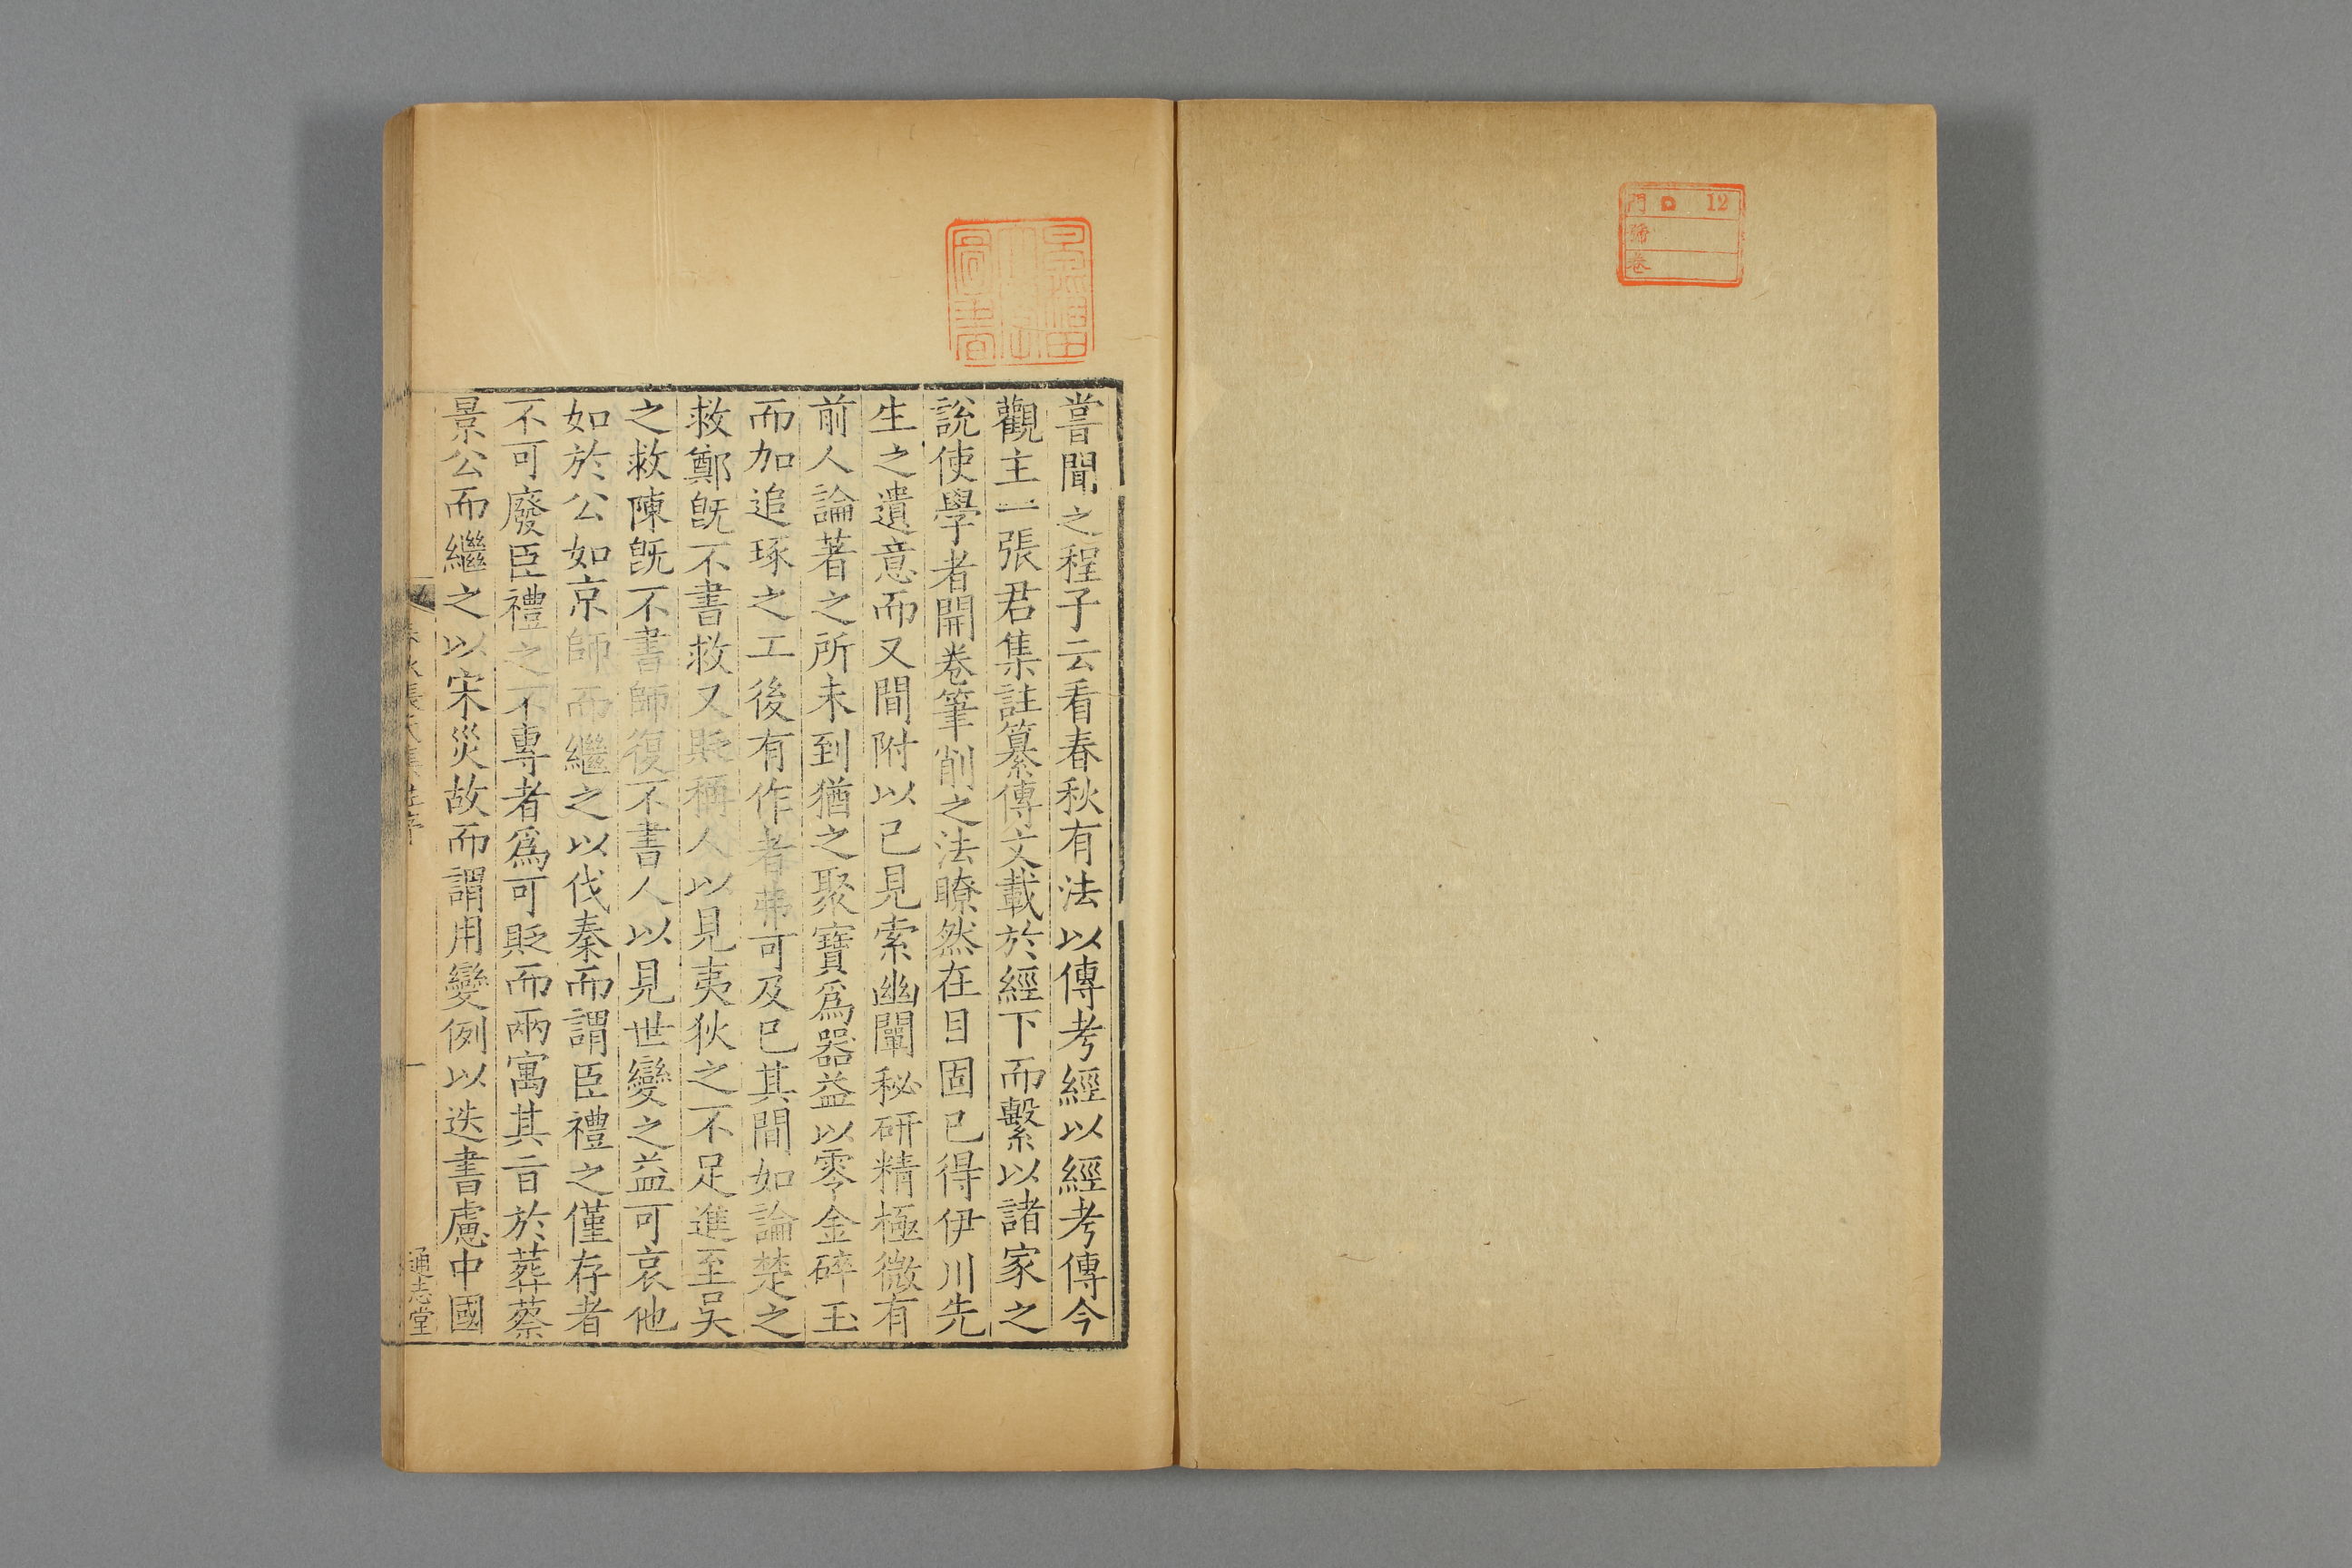 門 口 12
號
卷
嘗聞之程子云看春秋有法以傳考經以經考傳今
觀主一張君集註纂傳文載於經下而繫以諸家之
說使學者開卷筆削之法瞭然在目固已得伊川先
生之遺意而又間附以己見索幽闡秘研精極微有
前人論著之所未到猶之聚寶爲器益以零金碎玉
而加追琢之工後有作者弗可及已其間如論楚之
救鄭旣不書救又貶稱人以見夷狄之不足進至吳
之救陳旣不書師復不書人以見世變之益可哀他
如於公如京師而繼之以伐秦而謂臣禮之僅存者
不可廢臣禮之不專者爲可貶而兩寓其旨於葬蔡
景公而繼之以宋災故而謂用變例以迭書慮中國
春秋張氏集註序
一
通志堂